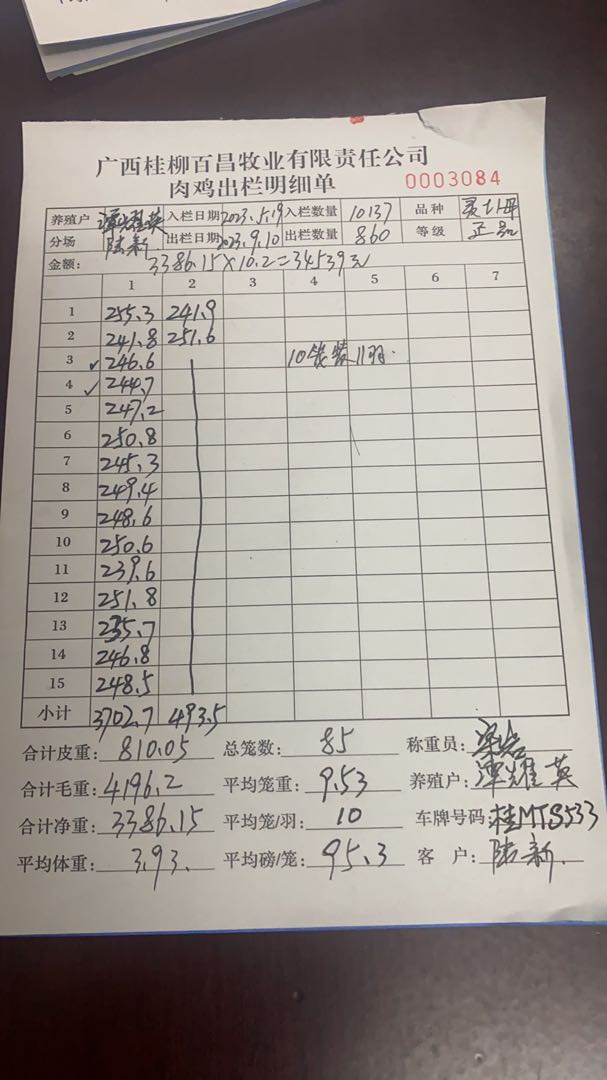 广西桂柳百昌牧业有限责任公司
肉鸡出栏明细单 0003084
养殖户 谭耀英 入栏日期 2023.5.19 入栏数量 10137 品种
分场 陆新 出栏日期 2023.9.10 出栏数量 860 等级 正品
金额: 3386.15×10.2=34539元
1 2 3 4 5 6 7
1 255.3 241.9
2 241.8 251.6
3 ✓ 246.6 10铁装11羽.
4 ✓ 244.7
5 247.2
6 250.8
7 245.3
8 249.4
9 248.6
10 250.6
11 239.6
12 251.8
13 235.7
14 246.8
15 248.5
小计 3702.7 493.5
合计皮重: 810.05 总笼数: 85 称重员:
合计毛重: 4196.2 平均笼重: 9.53 养殖户: 谭耀英
合计净重: 3386.15 平均笼/羽: 10 车牌号码: 桂MTS533
平均体重: 3.93. 平均磅/笼: 95.3 客户: 陆新.